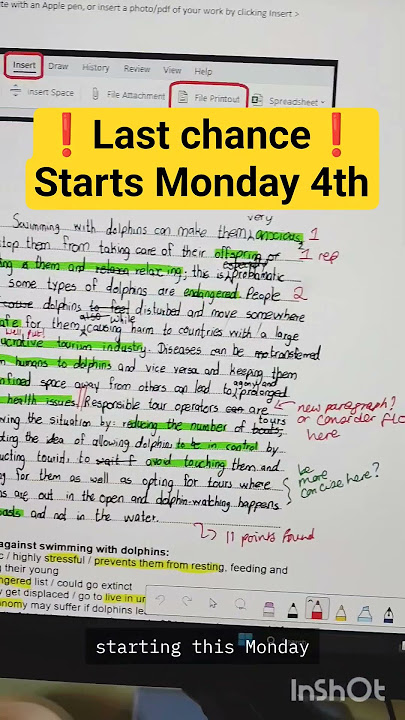 te with an Apple pen, or insert a photo/pdf of your work by clicking Insert >
Insert Draw History Review View Help
Insert Space File Attachment File Printout Spreadsheet
❗Last chance❗
Starts Monday 4th
very
Swimming with dolphins can make them anxious, 1
stop them from taking care of their offspring or 1 rep
relaxing; this is
some types of dolphins are endangered. People 2
dolphins to feel disturbed and move somewhere
also while
for them, causing harm to countries with a large
well put!
lucrative tourism industry. Diseases can be transferred
humans to dolphins and vice versa and keeping them
space away from others can lead to prolonged
health issues. Responsible tour operators can are new paragraph?
tours or consider
ving the situation by reducing the number of boats, here
ding the idea of allowing dolphin to be in control by
ucting tourists to avoid touching them and
be
more
concise here?
g for them as well as opting for tours where
are out in the open and dolphin-watching happens
and not in the water.
11 points found
against swimming with dolphins:
c / highly stressful / prevents them from resting, feeding and
g their young
ngered list / could go extinct
y get displaced / go to live in ur
onomy may suffer if dolphins le
starting this Monday
InShOt